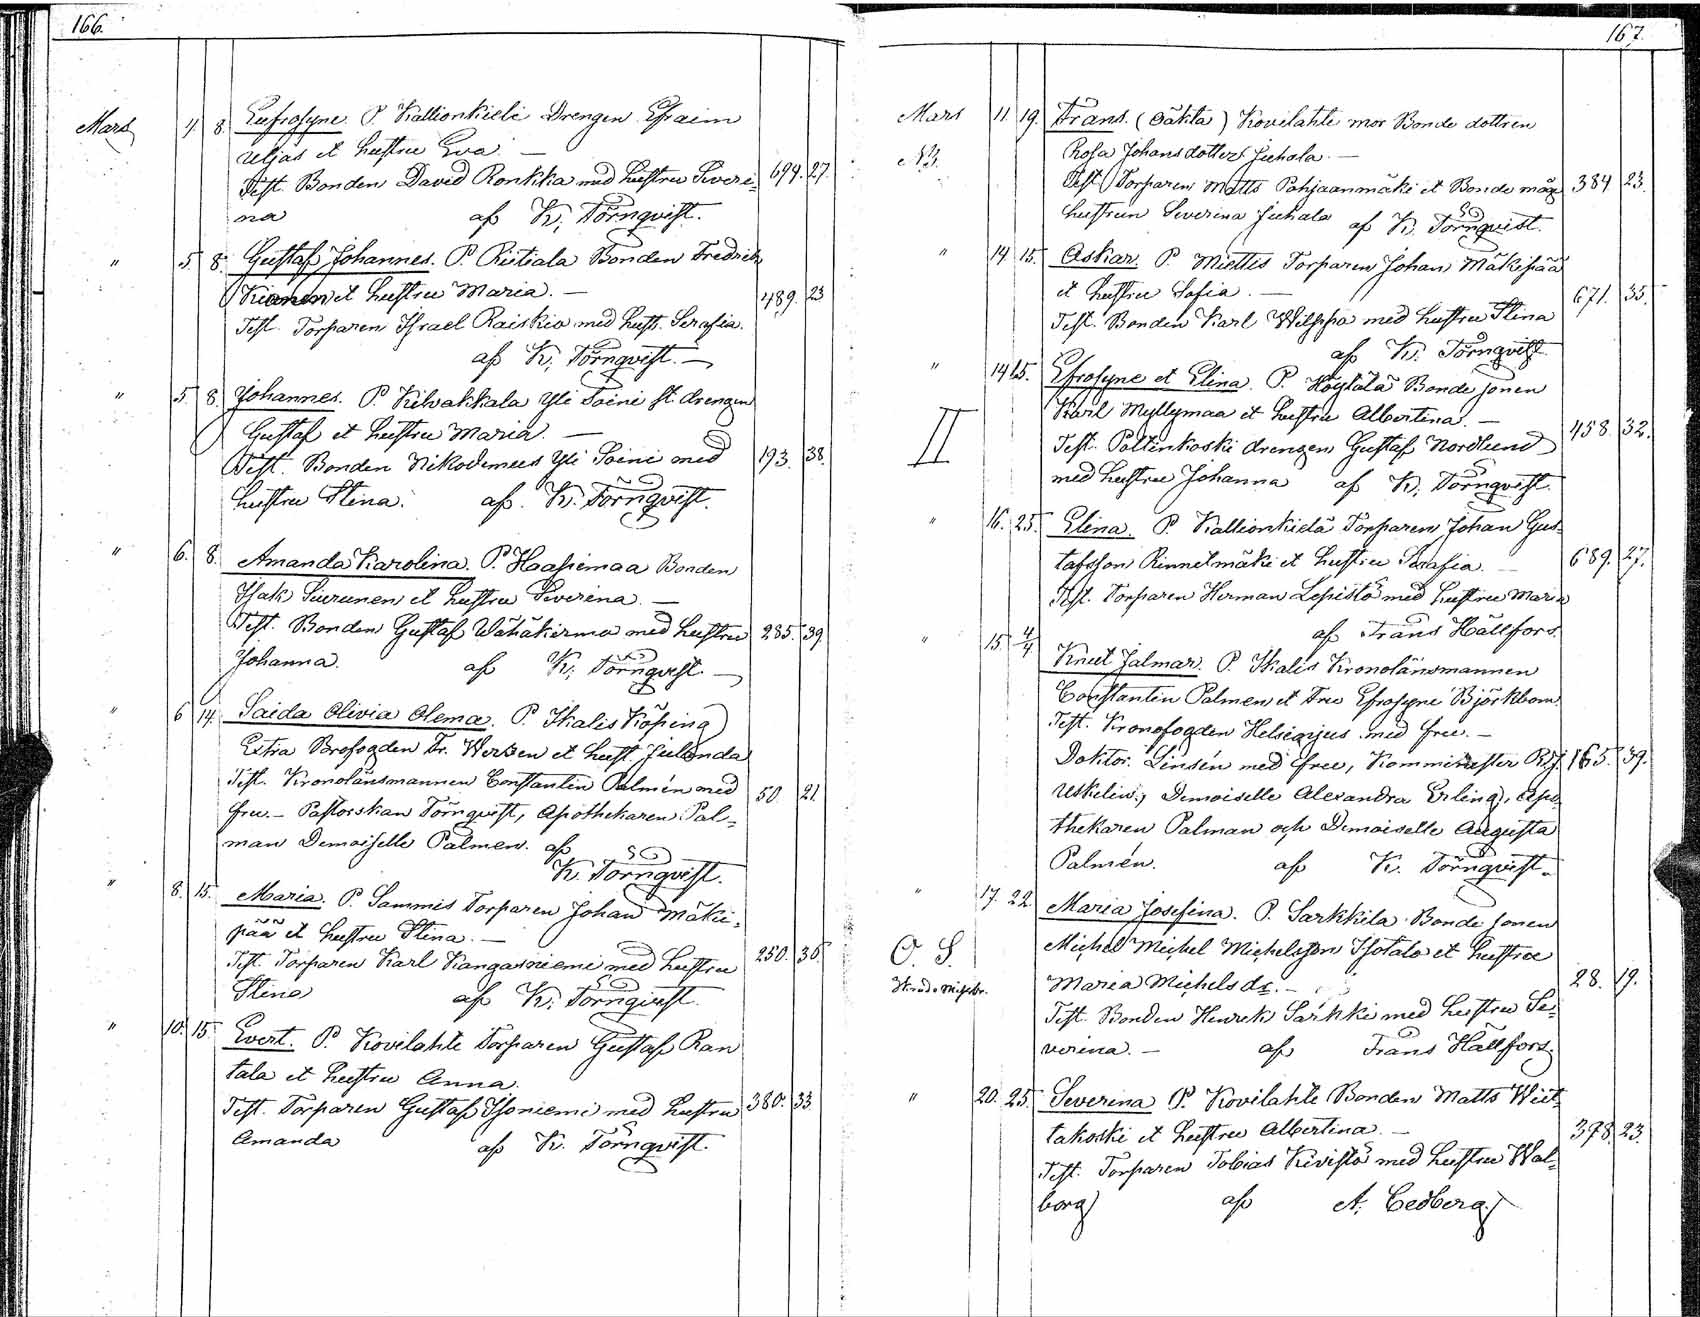 166.
Mars 4. 8. Eufrosyne. P. Kallionkieli Drengen Efraim
Uljas et hustru Eva. —
Test. Bonden David Ronkka med hustru Severi= 694. 27.
na af K. Törnqvist.
" 5. 8. Gustaf Johannes. P. Riitiala Bonden Fredrik
et hustru Maria. — 489. 23
Test. Torparen Israel Raiskio med hust. Serafia.
af K. Törnqvist. —
" 5. 8. Johannes. P. Kilvakkala Yli Soini st. drengen
Gustaf et hustru Maria. —
Test. Bonden Nikodemus Yli Soini med 193. 38.
hustru Stina. af K. Törnqvist.
" 6. 8. Amanda Karolina. P. Haapimaa Bonden
Isak Siurunen et hustru Severina. —
Test. Bonden Gustaf Wähäkirma med hustru 285. 39.
Johanna. af K. Törnqvist. —
" 6 14. Saida Olivia Olema. P. Ikalis Köping
Extra Brofogden Fr. Wersen et hust. Julianda
Test. Kronolänsmannen Constantin Palmén med 50. 21.
fru. — Pastorskan Törnqvist, Apothekaren Pal=
man Demoiselle Palmen. af
K. Törnqvist.
" 8. 15. Maria. P. Sammis Torparen Johan Mäki=
pää et hustru Stina. —
Test. Torparen Karl Kangasniemi med hustru 250. 36.
Stina af K. Törnqvist.
" 10. 15. Evert. P. Kovilahti Torparen Gustaf Ran
tala et hustru Anna.
Test. Torparen Gustaf Isoniemi med hustru 380. 33.
Amanda af K. Törnqvist.
167.
Mars 11. 19. Frans. (Oäkta) Kovilahti mor Bonde dottren
NB. Rosa Johansdotter Juhola. —
Test. Torparen Matts Pohjaanmäki et Bonde måg 384 23.
hustrun Severina Juhala af K. Törnqvist.
" 14. 15. Oskar. P. Miettis Torparen Johan Mäkipää
et hustru Sofia. — 671. 35.
Test. Bonden Karl med hustru Stina
af K. Törnqvist
" 14 15. Efrosyne et Elina. P. Höytälä Bonde sonen
II Karl Myllymaa et hustru Albertina. — 458. 32.
Test. Poltinkoski drengen Gustaf Nordlund
med hustru Johanna af K. Törnqvist.
" 16. 25. Elina. P. Kallionkielä Torparen Johan Gus=
tafsson Rinnelmäki et hustru Serafia. — 689. 27.
Test. Torparen Herman Lepistö med hustru Maria
af Frans Hällfors.
" 15. 4/4 Knut Jalmar. P. Ikalis Kronolänsmannen
Constantin Palmen et fru Efrosyne Björkbom.
Test. Kronofogden Helsingius med fru. —
Doktor. Linsén med fru, Komminister 165. 39.
Uskelius, Demoiselle Alexandra Erling, Apo=
thekaren Palman och Demoiselle Augusta
Palmén. af K. Törnqvist.
" 17. 22. Maria Josefina. P. Sarkkila Bonde sonen
O. S. Michel Michel Michelsson Isotalo et hustru
Maria Michelsdr. — 28. 19.
Test. Bonden Henrik Särkki med hustru Se=
verina. — af Frans Hällfors.
" 20. 25. Severina P. Kovilahti Bonden Matts Wiit=
takoski et hustru Albertina. — 378. 23.
Test. Torparen Tobias Kivistö med hustru Wal=
borg af A. Cedberg.